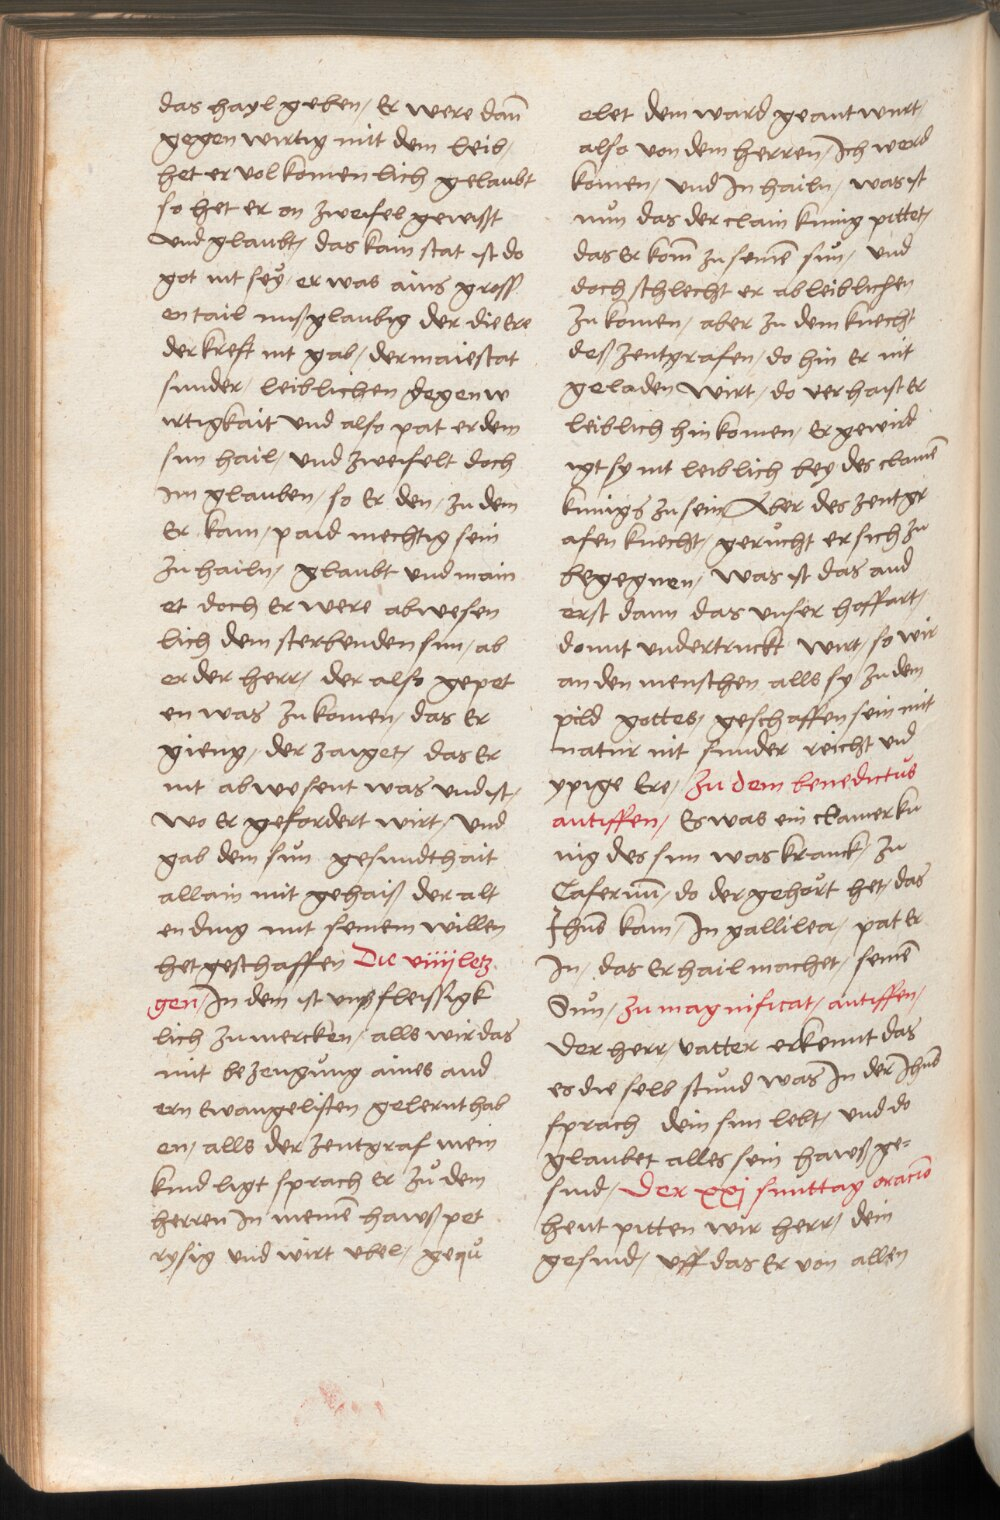 das hayl geben / Er were dañ
gegen wirtig mit dem leib /
het er volkomenlich gelaubt
so het er on zweifel gewist
vnd glaubt / das kain stat ist do
got nit seÿ / er was ains gross
en tail missglaubig der die Ere
der kreft nit gab / der maiestat
sunder / leiblichen gegenw
irtigkait vnd also pat er dem
sun hail / vnd zweifelt doch
im glauben / so Er den / zu dem
Er kam / paid mechtig sein
zu hailn / glaubt vnd main
et doch Er were abwesen
lich dem sterbenden sun / ab
er der herr / der also gepet
en was zu komen / das Er
gieng / der zaiget / das Er
nit abwesent was vnd ist /
wo Er gefordert wirt / vnd
gab dem sůn gesundthait
allain mit gehaiß der alt
en ding mit seinem willen
het geschaffen Die viiij letz
gen / In dem ist vnß fleissigk
lich zu mercken / alls wir das
mit bezeugůng aines and
ern Ewangelisten gelernt hab
en / alls der zentgraf mein
kind ligt sprach Er zů dem
herren In meinẽ hawß pet
rysig vnd wirt vbel / gequ
elet dem ward geantwurt /
also von dem herren / Ich werd
komen / vnd In hailn / was ist
nůn das der clain kunig pittet /
das Er kom̃ zu seinẽ sůn / vnd
doch schlecht er ab leiblichen
zu komen / aber zu dem knecht
deß zentgrafen / do hin Er nit
geladen wirt / do verhaist Er
leiblich hin komen / Er gewird
igt sy nit leiblich bey des clainẽ
kunigs zu sein / Aber des zentgr
afen knecht / gerůcht er sich zu
begegnen / was ist das and
erst dann das vnser hoffart /
domit vndertruckt wirt / so wir
an den menschen alls sy / zu dem
pild gottes / geschaffen sein mit
natur nit sunder reicht vnd
yppige Ere / Zu dem benedictůs
antiffen / Es was ein clainer ku
nig des sun was kranck / zu
Cafernũ / do der gehört het / das
Jhũs kam / In gallilea / pat Er
In / das Er hail machet / seinẽ
Sůn / zu magnificat / antiffen /
Der herr / vatter erkennt das
es die selb stůnd was In der Jhũs
sprach dein sun lebt / vnd do
glaubet alles sein hawß ge-
sind / Der xxj sunttag oraciõ
heut pitten wir herr / dein
gesind / vff das Er von allen